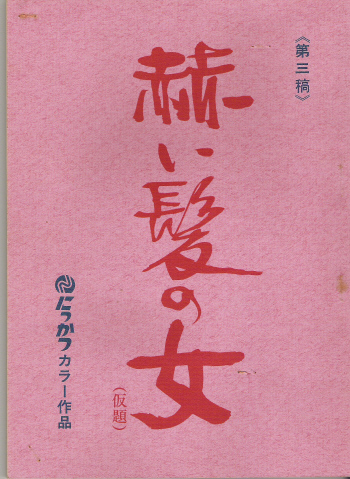 《第三稿》
赫い髪の女
（仮題）
にっかつカラー作品